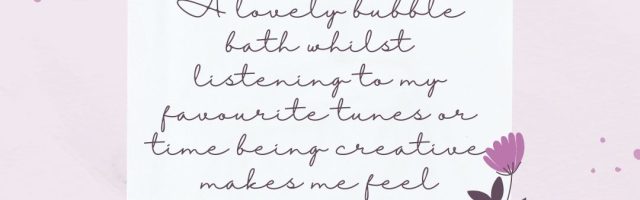 A lovely bubble
bath whilst
listening to my
favourite tunes or
time being creative
makes me feel